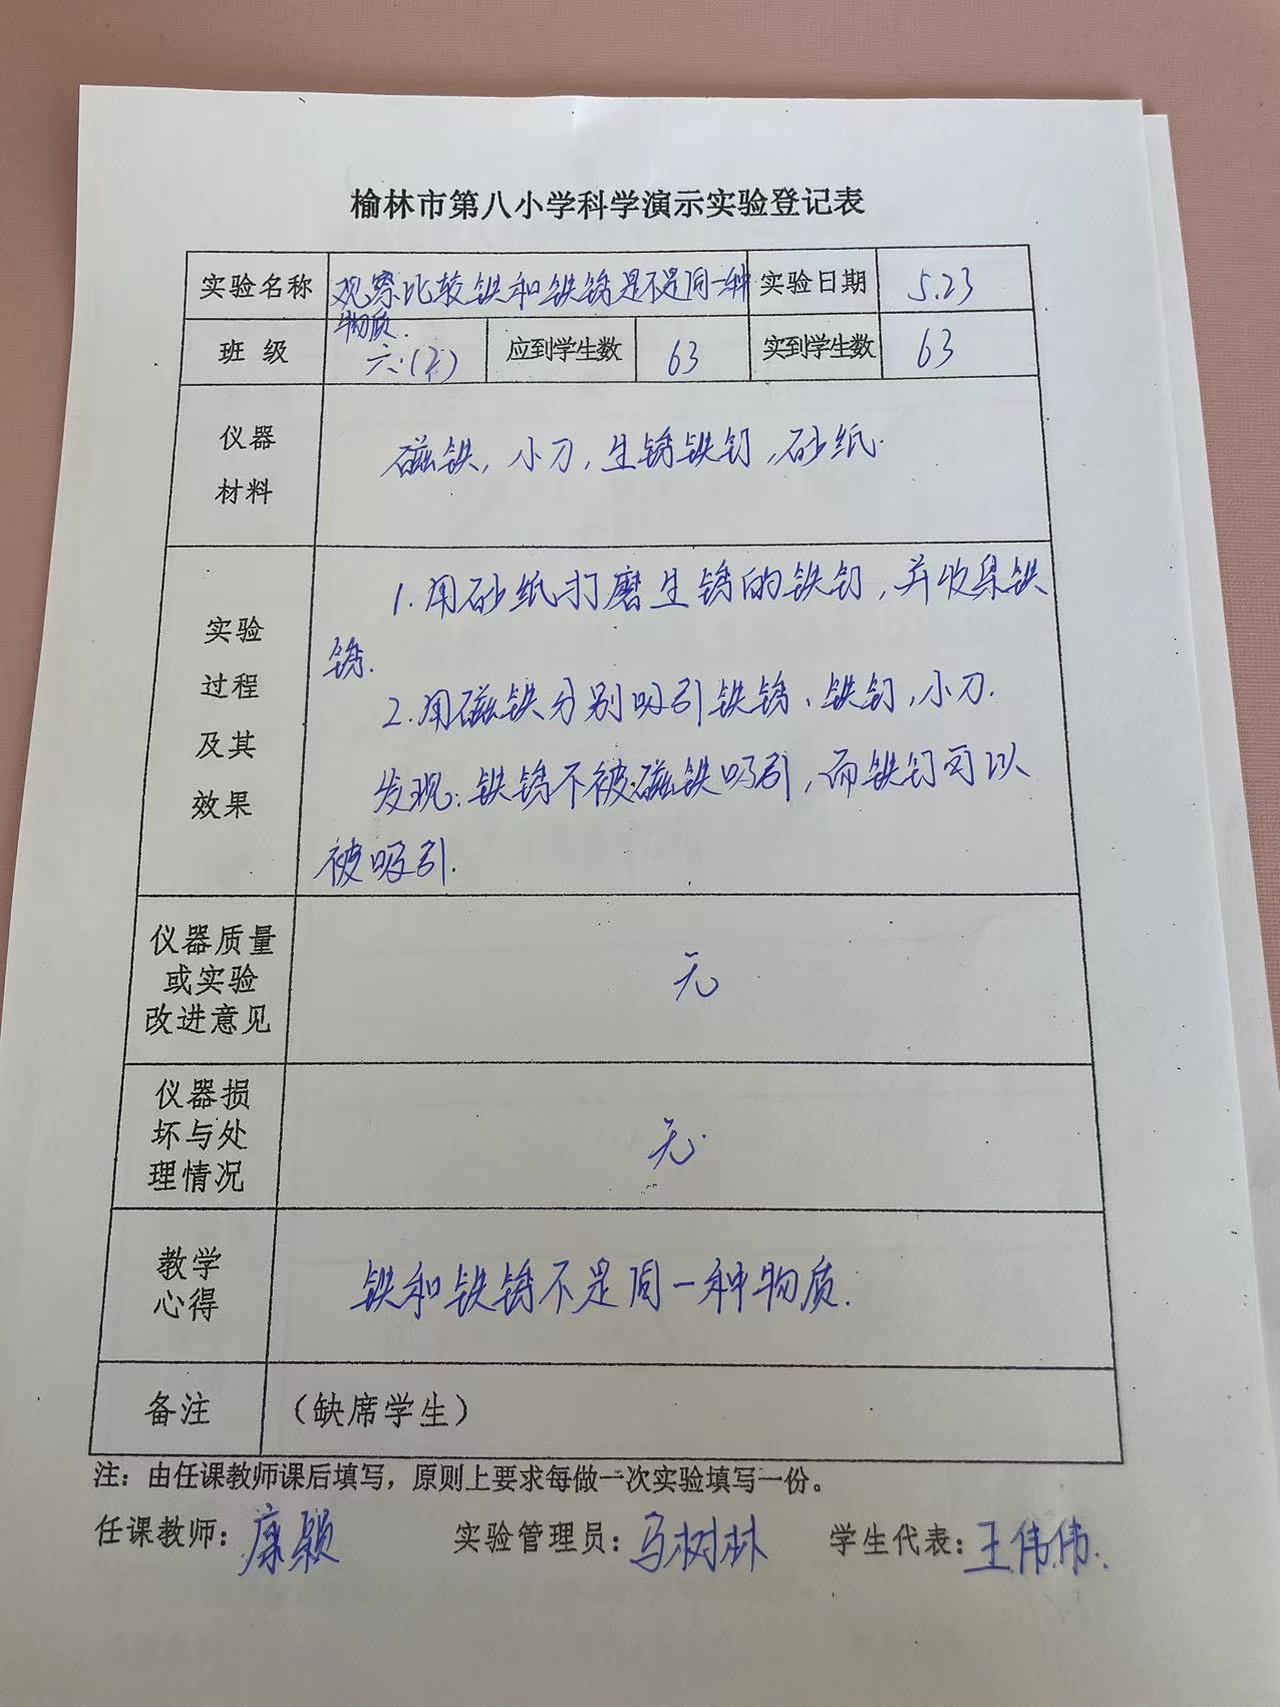 榆林市第八小学科学演示实验登记表
实验名称 观察比较铁和铁锈是不是同一种 实验日期 5.23
物质.
班 级 六.(2) 应到学生数 63 实到学生数 63
仪器 磁铁, 小刀, 生锈铁钉, 砂纸.
材料
1. 用砂纸打磨生锈的铁钉, 并收集铁
实验
锈.
过程 2. 用磁铁分别吸引铁锈、铁钉, 小刀.
及其
效果 发现: 铁锈不被磁铁吸引, 而铁钉可以
被吸引.
仪器质量
或实验 无
改进意见
仪器损
坏与处 无.
理情况
教学 铁和铁锈不是同一种物质.
心得
备注 (缺席学生)
注: 由任课教师课后填写, 原则上要求每做一次实验填写一份。
任课教师: 康颖 实验管理员: 马树林 学生代表: 王伟伟.